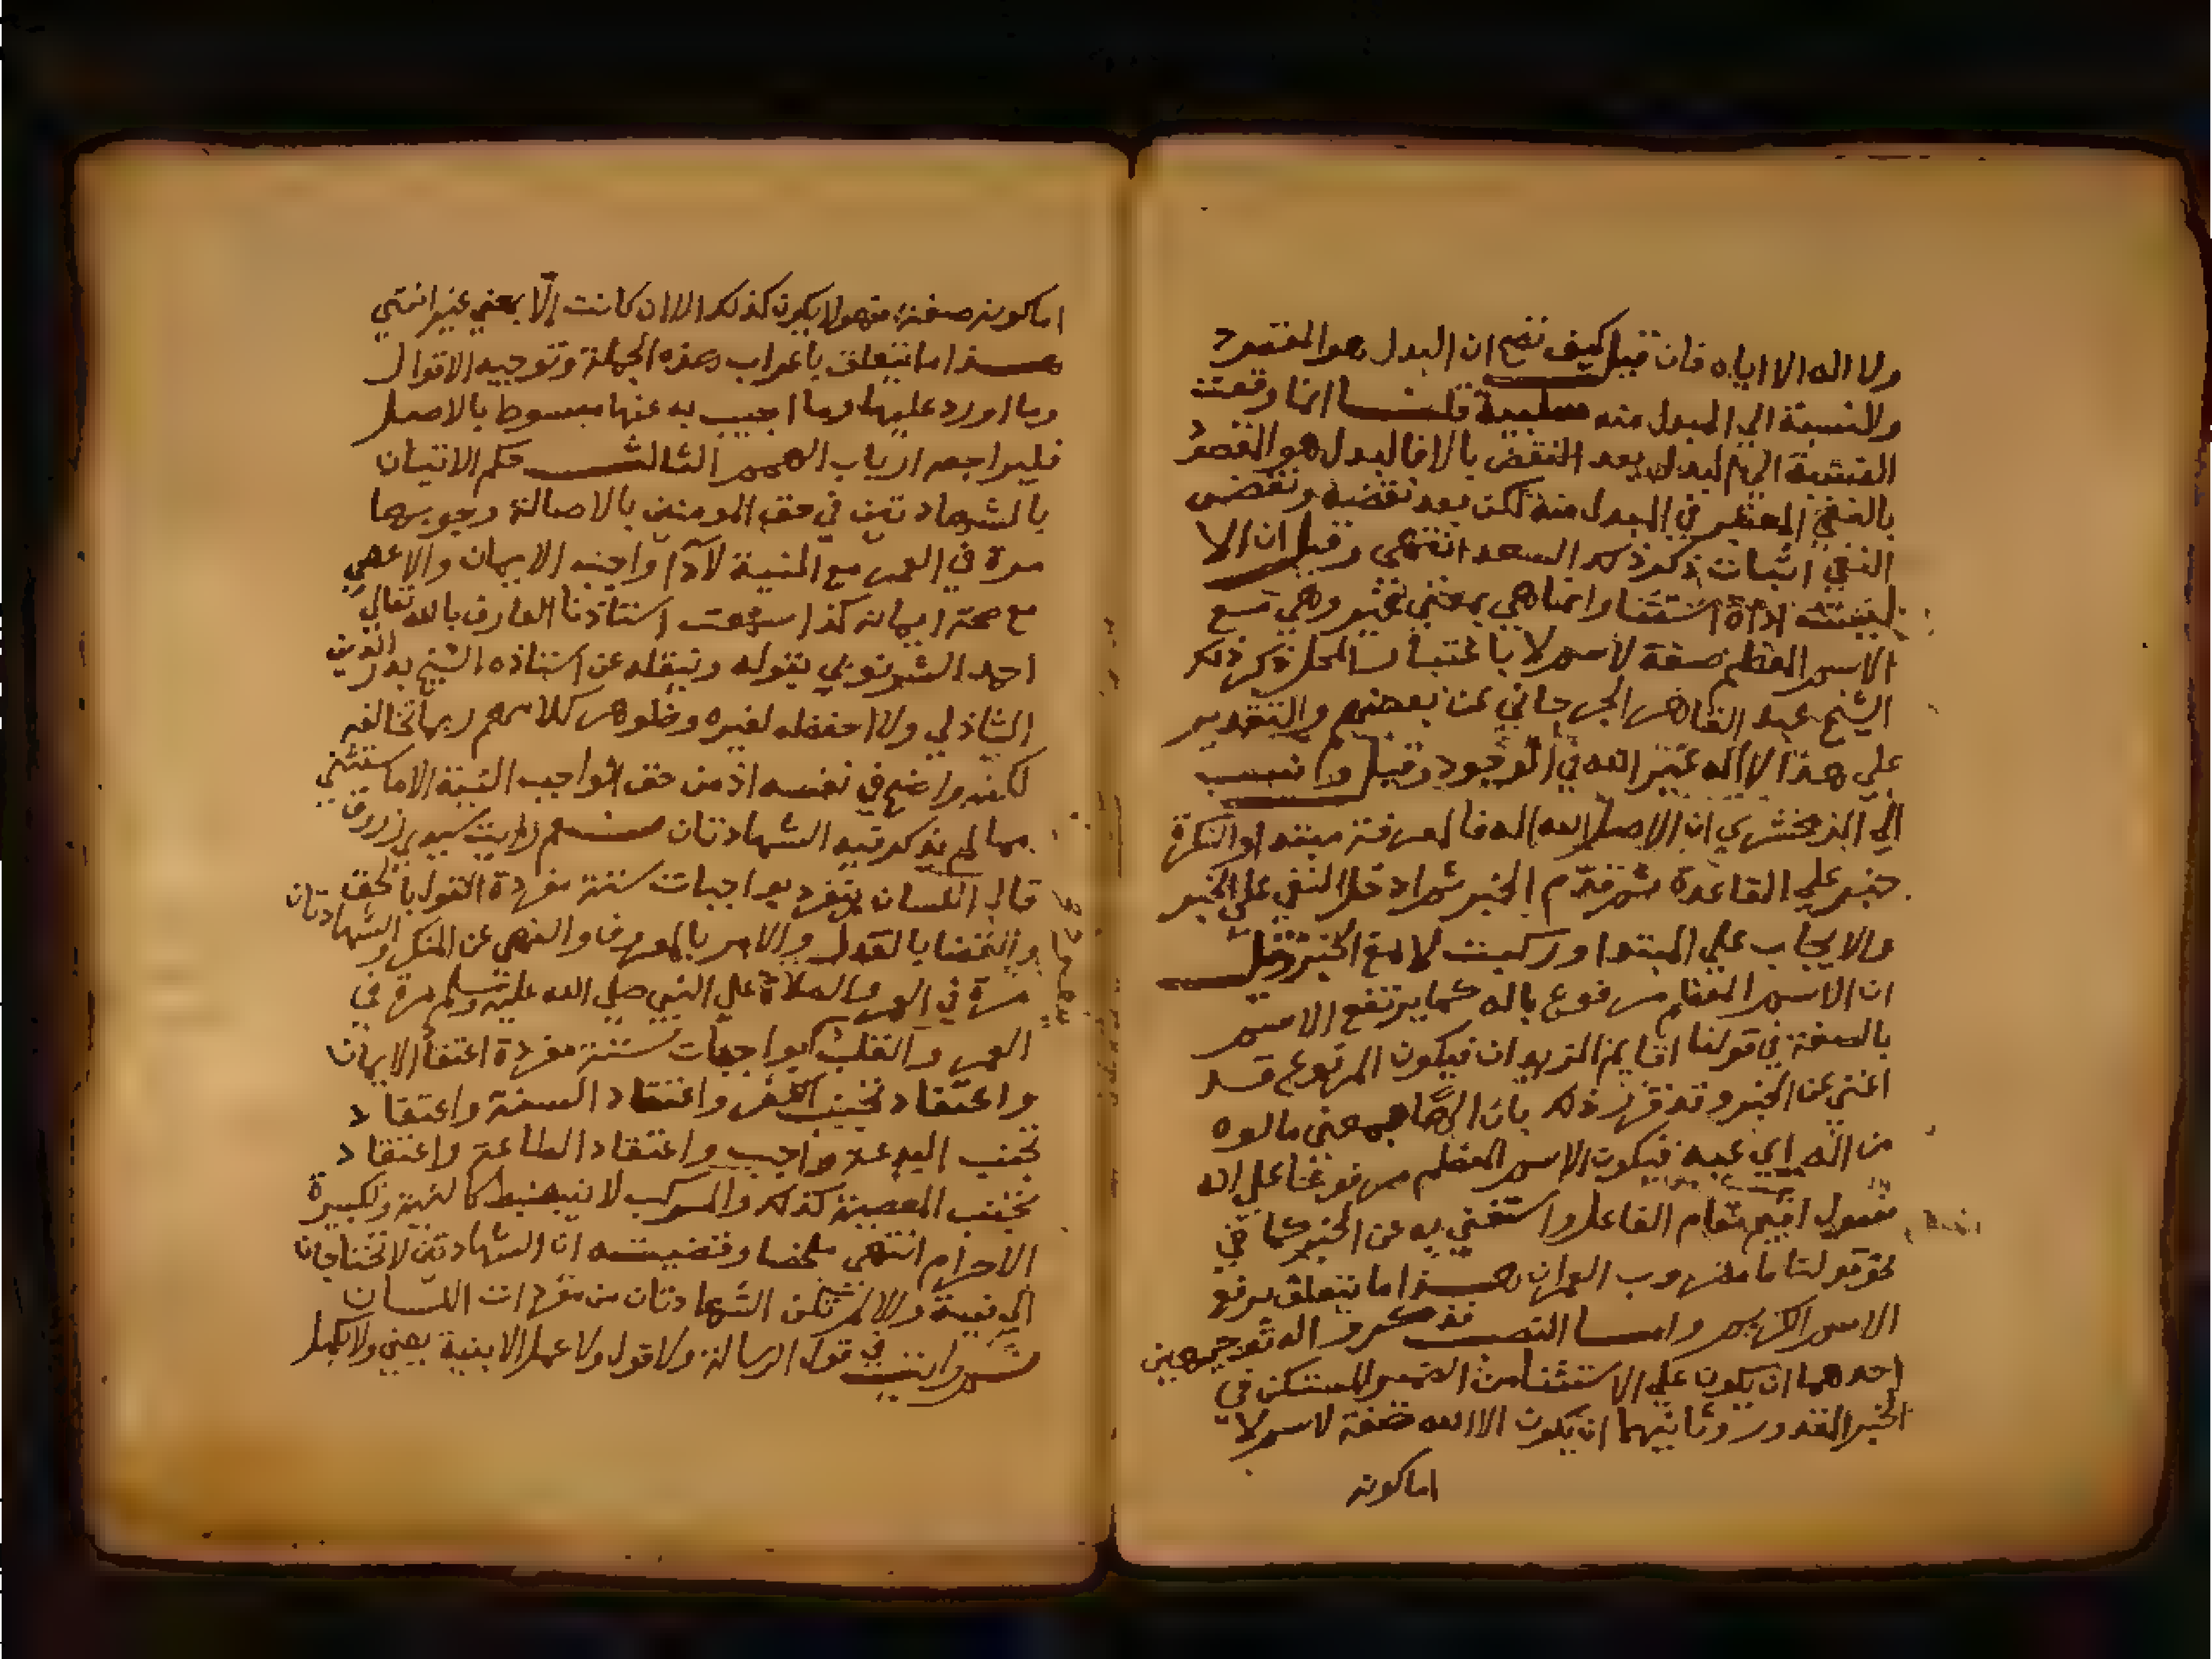 ولا اله الا اياه فان قيل كيف نصح ان البدل هو المقصود
ولا نسبة الي المبدل منه سلبية قلنا انما وقعت
النسبة الي البدل بعد النقض بالا فالبدل هو المقصود
بالنفي المعتبر في المبدل منه لكن بعد نقضه ونقض
النفي اثبات ذكر ذلك السعد انتهي وقيل ان الا
ليست اداة استثنا وانما هي بمعني غير وهي مع
الاسم المعظم صفة لاسم لا باعتبار المحل ذكر ذلك
الشيخ عبد القاهر الجرجاني عن بعضهم والتقدير
علي هذا لا اله غير الله في الوجود وقيل ونسب
الي الزمخشري ان الاصل الله اله فالمعرفة مبتدا والنكرة
خبر علي القاعدة ثم قدم الخبر ثم ادخل النفي علي الخبر
والايجاب علي المبتدا وركبت لا مع الخبر وقيل
ان الاسم المعظم مرفوع باله كما يرتفع الاسم
بالصفة في قولنا اقايم الزيدان فيكون المرفوع قد
اغني عن الخبر وقد قرر ذلك بان الها بمعني مالوه
من اله اي عبد فيكون الاسم المعظم مرفوعا علي انه
مفعول اقيم مقام الفاعل واستغني به عن الخبر كما في
نحو قولنا ما مضروب العمران هذا ما يتعلق برفع
الاسم الكريم واما النصب فذكروا له توجيهين
احدهما ان يكون علي الاستثنا من الضمير المستكن في
الخبر المقدور وثانيهما ان يكون الا الله صفة لاسم لا
اما كونه
اما كونه صفة فهو لا يكون كذلك الا ان كانت الا بمعني غير انتهي
هذا ما يتعلق باعراب هذه الجملة وتوجيه الاقوال
وما اورد عليها وما اجيب به عنها مبسوط بالاصل
فليراجعه ارباب الهمم الثالث حكم الاتيان
بالشهادتين في حق المومنين بالاصالة وجوبهما
مرة في العمر مع النية لادا واجب الايمان والا عصي
مع صحة ايمانه كذا سمعت استاذنا العارف بالله تعالي
احمد الشرنوبي يقوله وينقله عن استاذه الشيخ بدر الدين
الشاذلي ولا احفظه لغيره وظواهر كلامهم ربما تخالفه
لكنه واضح في نفسه اذ من حق الواجب النية الا ما استثني
مما لم يذكر فيه الشهادتان نعم رايت سيدي زروق
قال اللسان ينفرد بواجبات ستة مفردة القول بالحق
والقضا بالعدل والامر بالمعروف والنهي عن المنكر والشهادتان
مرة في العمر والصلاة علي النبي صلي الله عليه وسلم مرة في
العمر والقلب بواجبات ستة مفردة اعتقاد الايمان
واعتقاد تجنب الكفر واعتقاد السنة واعتقاد
تجنب البدعة واجب واعتقاد الطاعة واعتقاد
تجنب المعصية كذلك والمركب لا ينضبط كالنية وتكبيرة
الاحرام انتهي ملخصا وقضيته ان الشهادتين لا تحتاجان
الي نية والا لم تكن الشهادتان من مفردات اللسان
ثم رايت في قول الرسالة ولا قول ولا عمل الا بنية يعني ولا يكمل